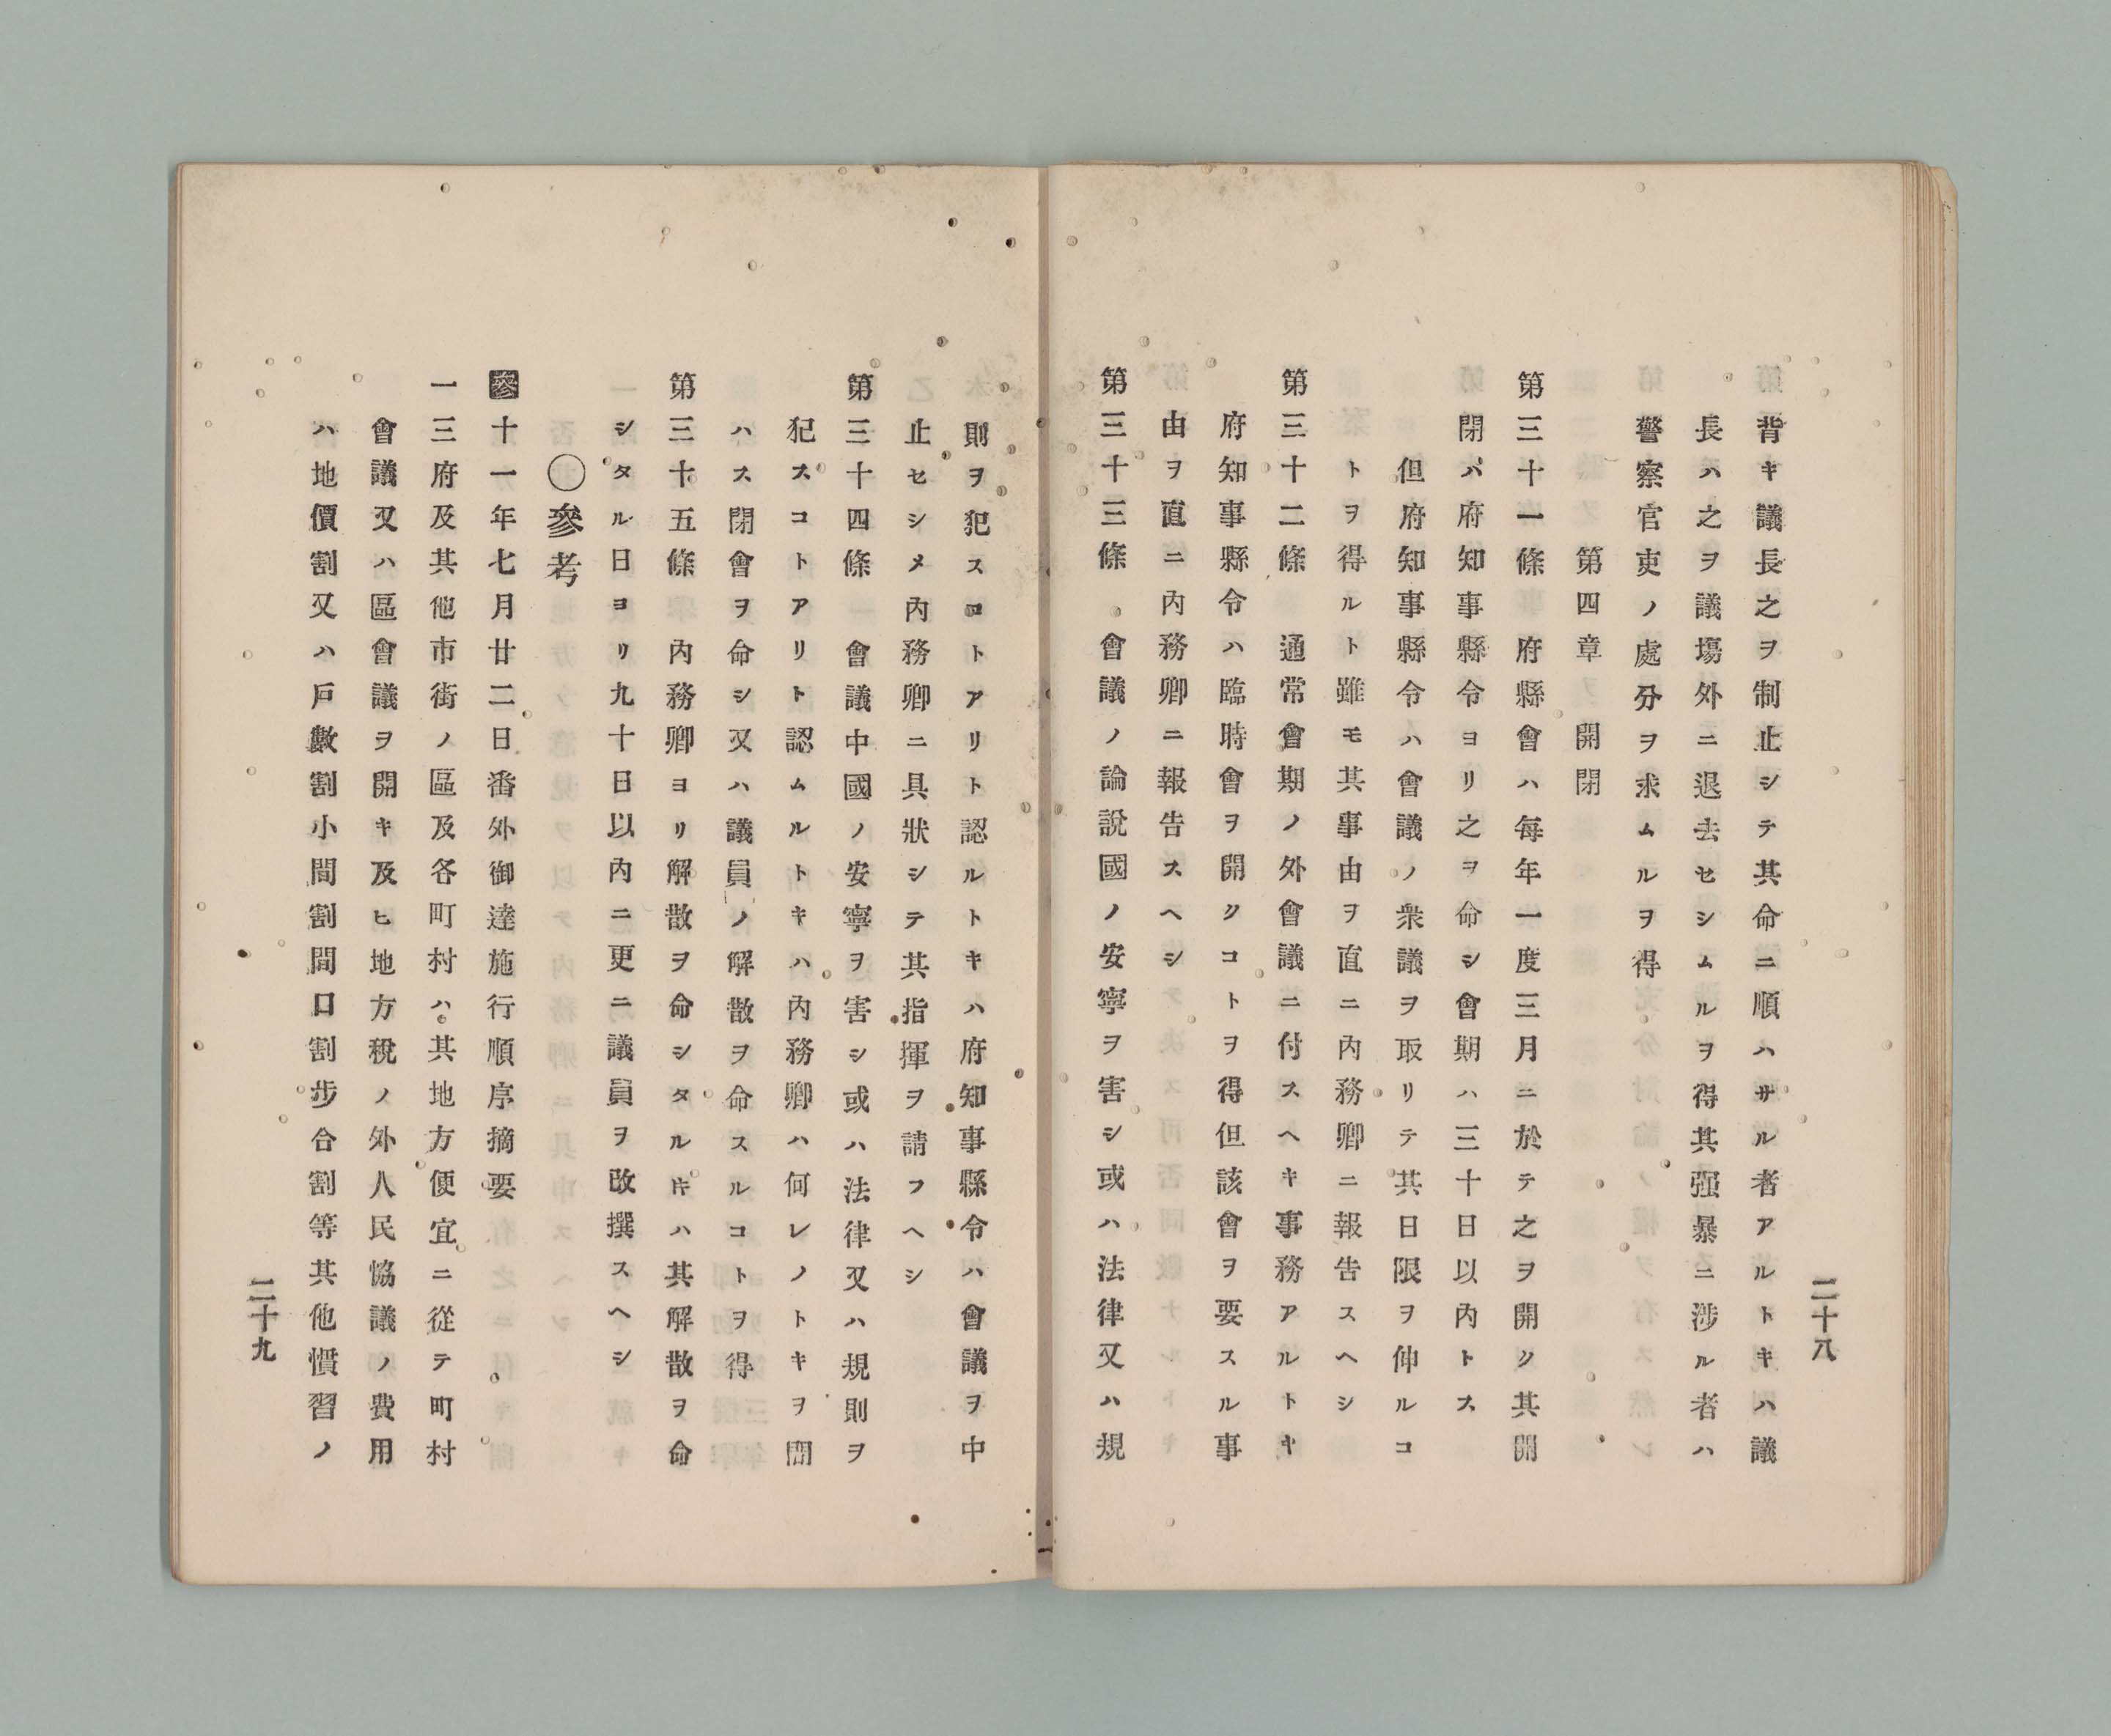 背キ議長之ヲ制止シテ其命ニ順ハサル者アルトキハ議
長ハ之ヲ議塲外ニ退去セシムルヲ得其强暴ニ涉ル者ハ
警察官吏ノ處分ヲ求ムルヲ得
第四章　開閉
第三十一條　府縣會ハ每年一度三月ニ於テ之ヲ開ク其開
閉ハ府知事縣令ヨリ之ヲ命シ會期ハ三十日以內トス
但府知事縣令ハ會議ノ衆議ヲ取リテ其日限ヲ伸ルコ
トヲ得ルト雖モ其事由ヲ直ニ內務卿ニ報告スヘシ
第三十二條　通常會期ノ外會議ニ付スヘキ事務アルトキ
府知事縣令ハ臨時會ヲ開クコトヲ得但該會ヲ要スル事
由ヲ直ニ內務卿ニ報告スヘシ
第三十三條　會議ノ論說國ノ安寧ヲ害シ或ハ法律又ハ規
二十八
則ヲ犯スコトアリト認ルトキハ府知事縣令ハ會議ヲ中
止セシメ內務卿ニ具狀シテ其指揮ヲ請フヘシ
第三十四條　會議中國ノ安寧ヲ害シ或ハ法律又ハ規則ヲ
犯スコトアリト認ムルトキハ內務卿ハ何レノトキヲ問
ハス閉會ヲ命シ又ハ議員ノ解散ヲ命スルコトヲ得
第三十五條　內務卿ヨリ解散ヲ命シタルキハ其解散ヲ命
シタル日ヨリ九十日以內ニ更ニ議員ヲ改撰スヘシ
〇參考
參十一年七月廿二日番外御達施行順序摘要
一三府及其他市街ノ區及各町村ハ其地方便宜ニ從テ町村
會議又ハ區會議ヲ開キ及ヒ地方稅ノ外人民恊議ノ費用
ハ地價割又ハ戶數割小間割間口割步合割等其他慣習ノ
二十九